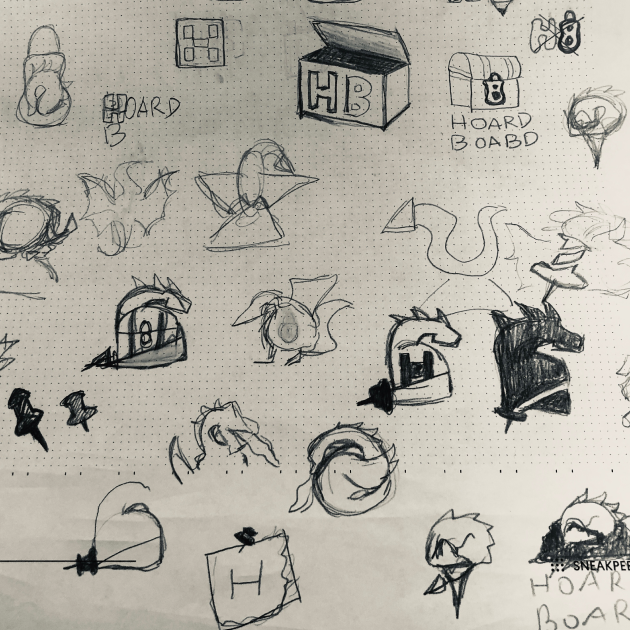 H
HB
HB
HOARD
B
HOARD
BOABD
H
H
SNEAKPEE
HOAR
BOAR